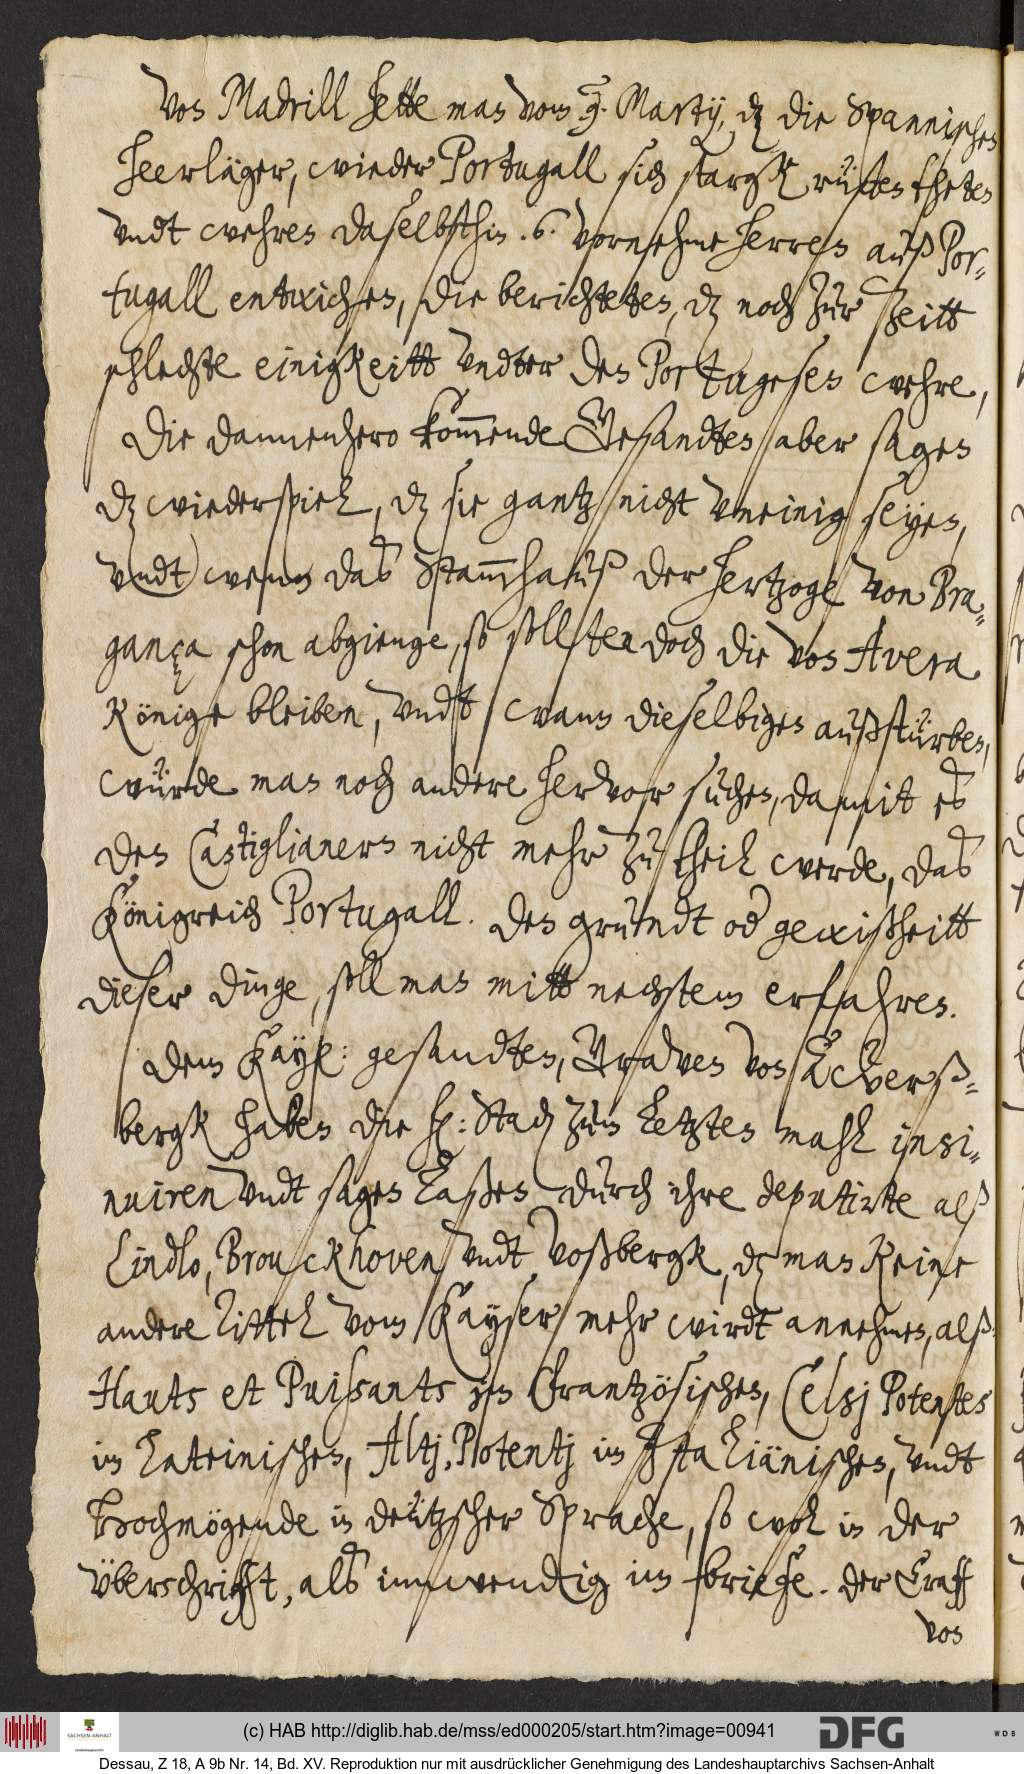 Von Madrill hette man vom 9. Martij, dz die Spannischen
heerläger, wieder Portugall sich stargk rüsten theten
vndt wehren daselbsthin .6. vornehme herren auß Por¬
tugall entwichen, die berichteten, dz noch zur zeitt
schlechte einigkeitt vndter den Portugesen wehre,
Die dannenhero kommende Gesandten aber sagen
dz wiederspiel, dz sie gantz nicht vneinig seyen,
vndt wenn das Stammhauß der hertzoge von Bra¬
gança schon abgienge, so sollten doch die von Avera
Könige bleiben, vndt wann dieselbigen außstürben,
würde man noch andere hervor suchen, damit es
den Castiglianern nicht mehr zu theil werde, das
Königreich Portugall. Den grundt od gewißheitt
dieser dinge, soll man mitt nechstem erfahren.
Dem Kays: gesandten, Graven von Aversß¬
bergk haben die h: Stad zum letzten mahl insi¬
nuiren vndt sagen laßen durch ihre deputirte alß
Lindlo, Brouckhoven vndt Voßbergk, dz man keine
andere tittel vom Kayser mehr wirdt annehmen, alß:
Hauts et Puissants jm Frantzösischen, Celsj Potentes
im Lateinischen, Altj, Potentj im Jtaliänischen, vndt
Hochmögende in deützscher Sprache, so wol in der
vberschrifft, als innwendig im briefe. Der Graff
von
(c) HAB http://diglib.hab.de/mss/ed000205/start.htm?image=00941
SACHSEN-ANHALT
DFG
WDB
Dessau, Z 18, A 9b Nr. 14, Bd. XV. Reproduktion nur mit ausdrücklicher Genehmigung des Landeshauptarchivs Sachsen-Anhalt